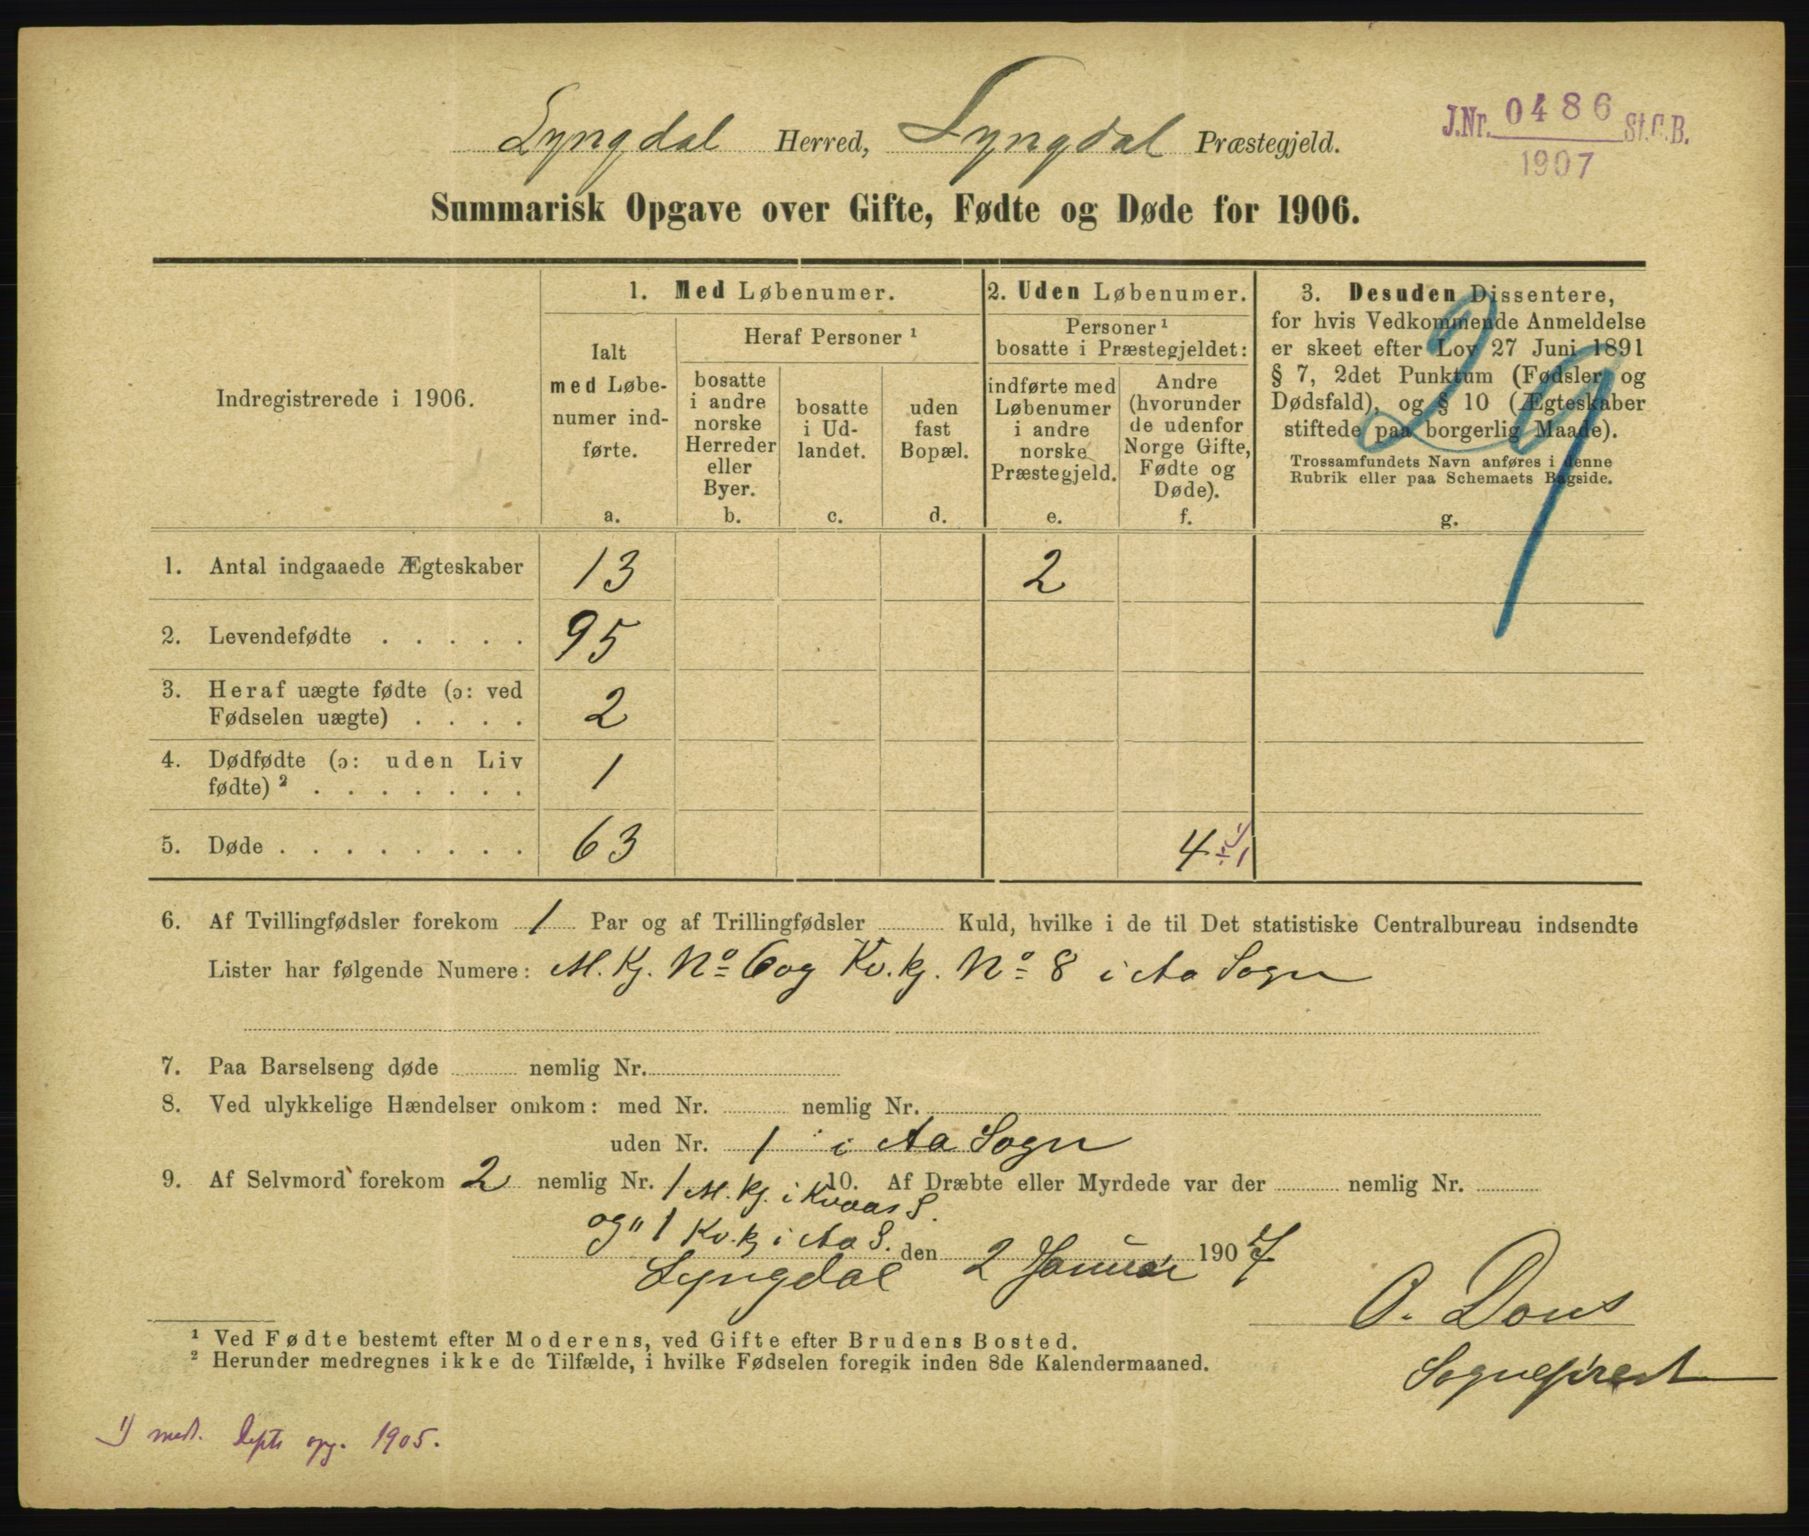 Lyngdal Herred, Lyngdal Præstegjeld.
J.Nr. 0486 St.C.B.
1907
Summarisk Opgave over Gifte, Fødte og Døde for 1906.
Indregistrerede i 1906.
1. Med Løbenumer.
Ialt
med Løbe-
numer ind-
førte.
a.
Heraf Personer ¹
bosatte
i andre
norske
Herreder
eller
Byer.
b.
bosatte
i Ud-
landet.
c.
uden
fast
Bopæl.
d.
2. Uden Løbenumer.
Personer ¹
bosatte i Præstegjeldet:
indførte med
Løbenumer
i andre
norske
Præstegjeld.
e.
Andre
(hvorunder
de udenfor
Norge Gifte,
Fødte og
Døde).
f.
3. Desuden Dissentere,
for hvis Vedkommende Anmeldelse
er skeet efter Lov 27 Juni 1891
§ 7, 2det Punktum (Fødsler og
Dødsfald), og § 10 (Ægteskaber
stiftede paa borgerlig Maade).
Trossamfundets Navn anføres i denne
Rubrik eller paa Schemaets Bagside.
g.
29
1. Antal indgaaede Ægteskaber 13 2
2. Levendefødte . . . . . 95
3. Heraf uægte fødte (ɔ: ved
Fødselen uægte) . . . . 2
4. Dødfødte (ɔ: uden Liv
fødte) ² . . . . . . . 1
5. Døde . . . . . . . . 63 4 ÷ 1 ¹⁾
6. Af Tvillingfødsler forekom 1 Par og af Trillingfødsler Kuld, hvilke i de til Det statistiske Centralbureau indsendte
Lister har følgende Numere: M. Kj. No 6 og Kv. kj. No 8 i Aa Sogn
7. Paa Barselseng døde nemlig Nr.
8. Ved ulykkelige Hændelser omkom: med Nr. nemlig Nr.
uden Nr. 1 i Aa Sogn
9. Af Selvmord forekom 2 nemlig Nr. 1 M. kj. i Kvaas S. 10. Af Dræbte eller Myrdede var der nemlig Nr.
og " 1 Kv. kj i Aa S.
Lyngdal den 2 Januar 1907
O. Dons
Sogneprest
¹ Ved Fødte bestemt efter Moderens, ved Gifte efter Brudens Bosted.
² Herunder medregnes ikke de Tilfælde, i hvilke Fødselen foregik inden 8de Kalendermaaned.
1) med. Depts opg. 1905.